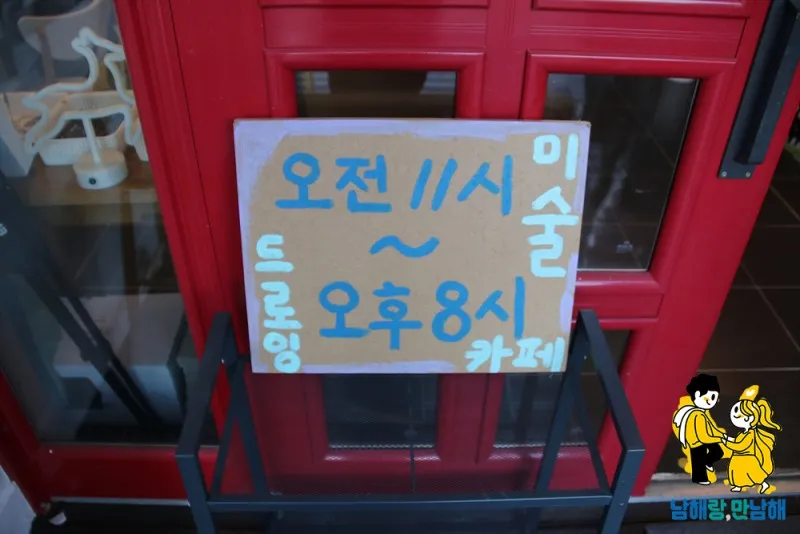 오전 11시
~
오후 8시
미술
드로잉
카페
남해랑, 만남해